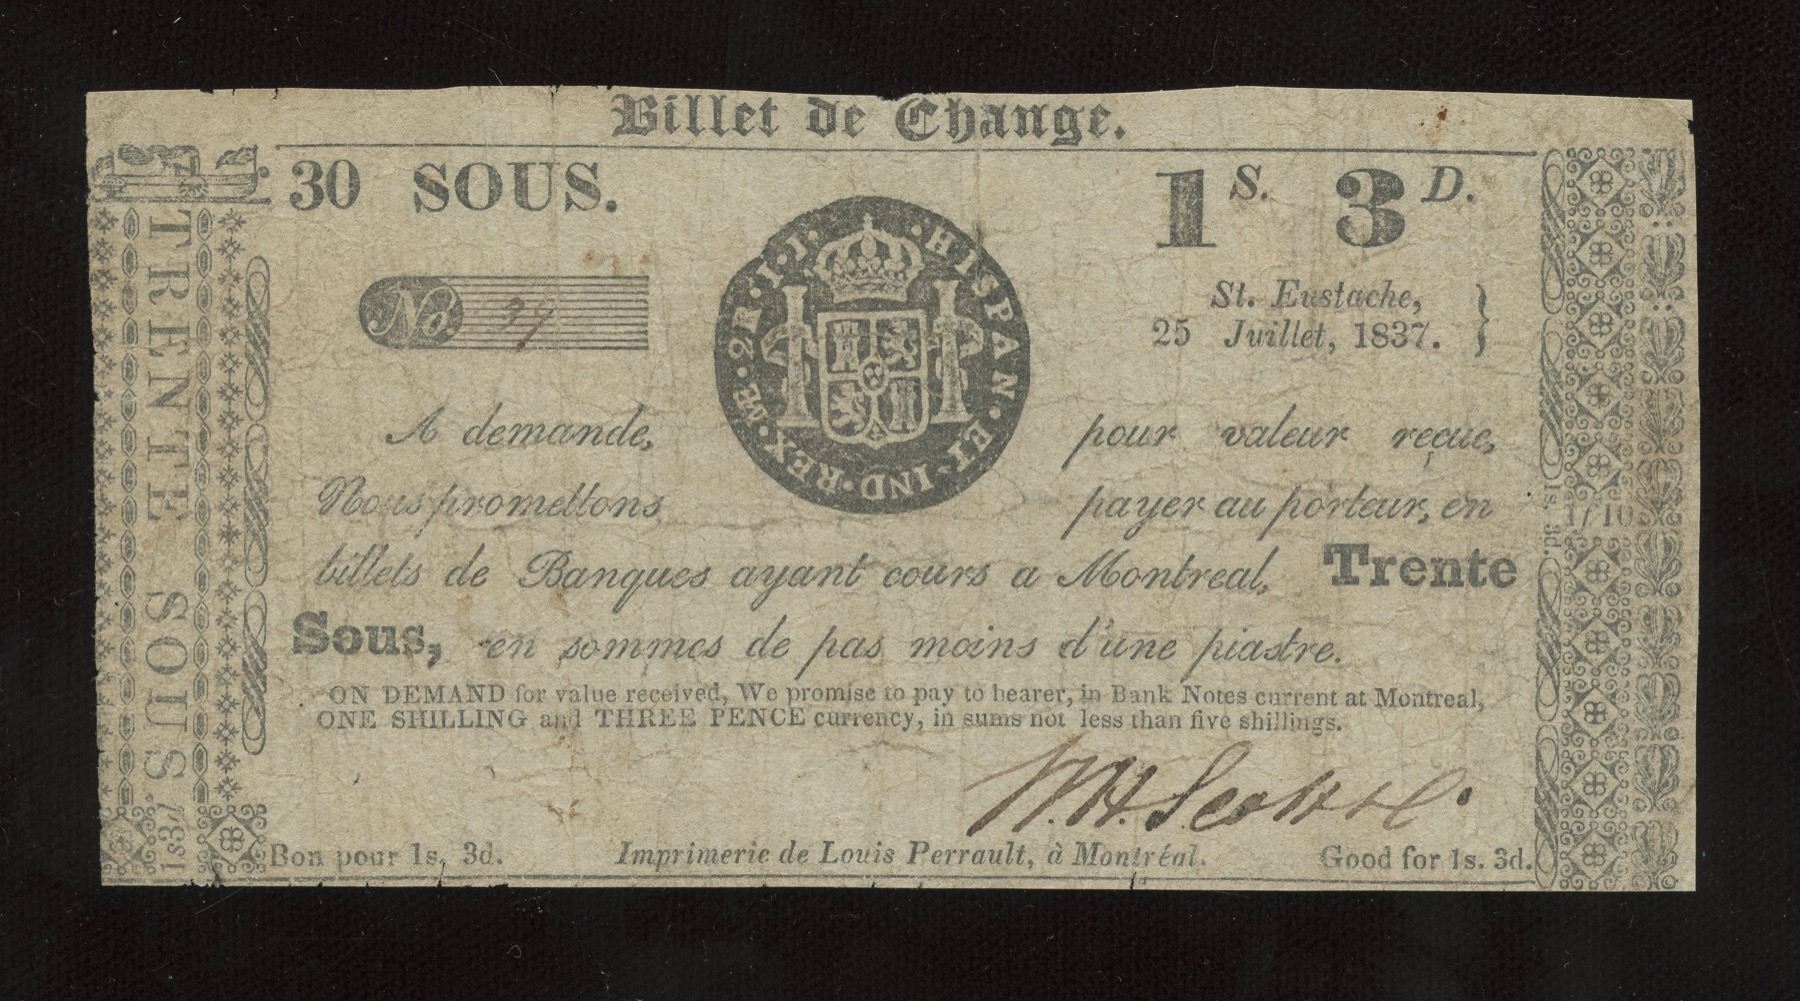 Billet de Change.
30 SOUS.
1 S. 3 D.
No. 39
St. Eustache,
25 Juillet, 1837.
·HISPAN·ET·IND·REX·ME·2R·I·I·
A demande, pour valeur reçue,
Nous promettons payer au porteur, en
billets de Banques ayant cours a Montreal, Trente
Sous, en sommes de pas moins d'une piastre.
ON DEMAND for value received, We promise to pay to bearer, in Bank Notes current at Montreal,
ONE SHILLING and THREE PENCE currency, in sums not less than five shillings.
W.H. Scott
Bon pour 1s, 3d. Imprimerie de Louis Perrault, à Montréal. Good for 1s. 3d.
TRENTE SOUS. 1837
1s. 3d.